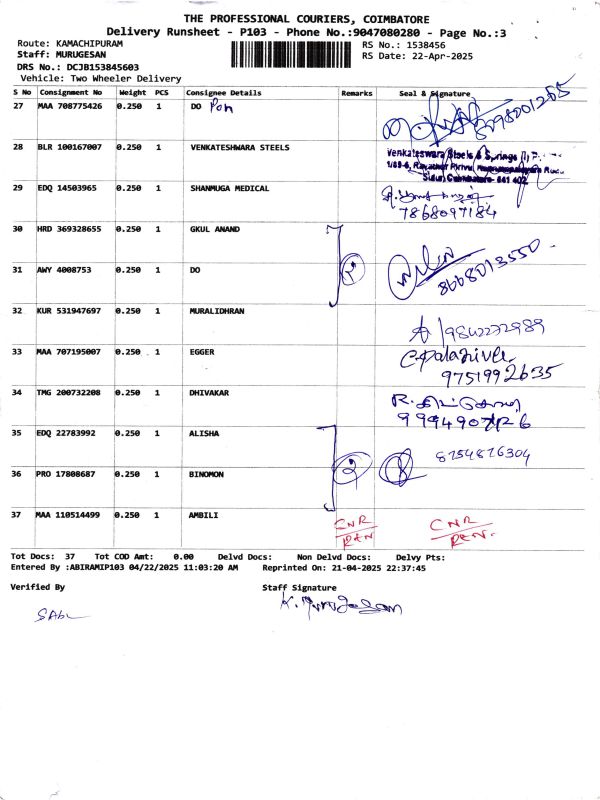 THE PROFESSIONAL COURIERS, COIMBATORE
Delivery Runsheet - P103 - Phone No.:9047080280 - Page No.:3
Route: KAMACHIPURAM RS No.: 1538456
Staff: MURUGESAN RS Date: 22-Apr-2025
DRS No.: DCJB153845603
Vehicle: Two Wheeler Delivery
S No Consignment No Weight PCS Consignee Details Remarks Seal & Signature
27 MAA 708775426 0.250 1 DO Pon
28 BLR 100167007 0.250 1 VENKATESHWARA STEELS Venkateswara Steels & Springs
29 EDQ 14503965 0.250 1 SHANMUGA MEDICAL
7868097184
30 HRD 369328655 0.250 1 GKUL ANAND
31 AWY 4008753 0.250 1 DO 2 8668013550
32 KUR 531947697 0.250 1 MURALIDHRAN
9842272989
33 MAA 707195007 0.250 1 EGGER
9751992635
34 TMG 200732208 0.250 1 DHIVAKAR
35 EDQ 22783992 0.250 1 ALISHA
8754876304
36 PRO 17808687 0.250 1 BINOMON 2
37 MAA 110514499 0.250 1 AMBILI CNR CNR
Tot Docs: 37 Tot COD Amt: 0.00 Delvd Docs: Non Delvd Docs: Delvy Pts:
Entered By :ABIRAMIP103 04/22/2025 11:03:20 AM Reprinted On: 21-04-2025 22:37:45
Verified By Staff Signature
K. Murugesan